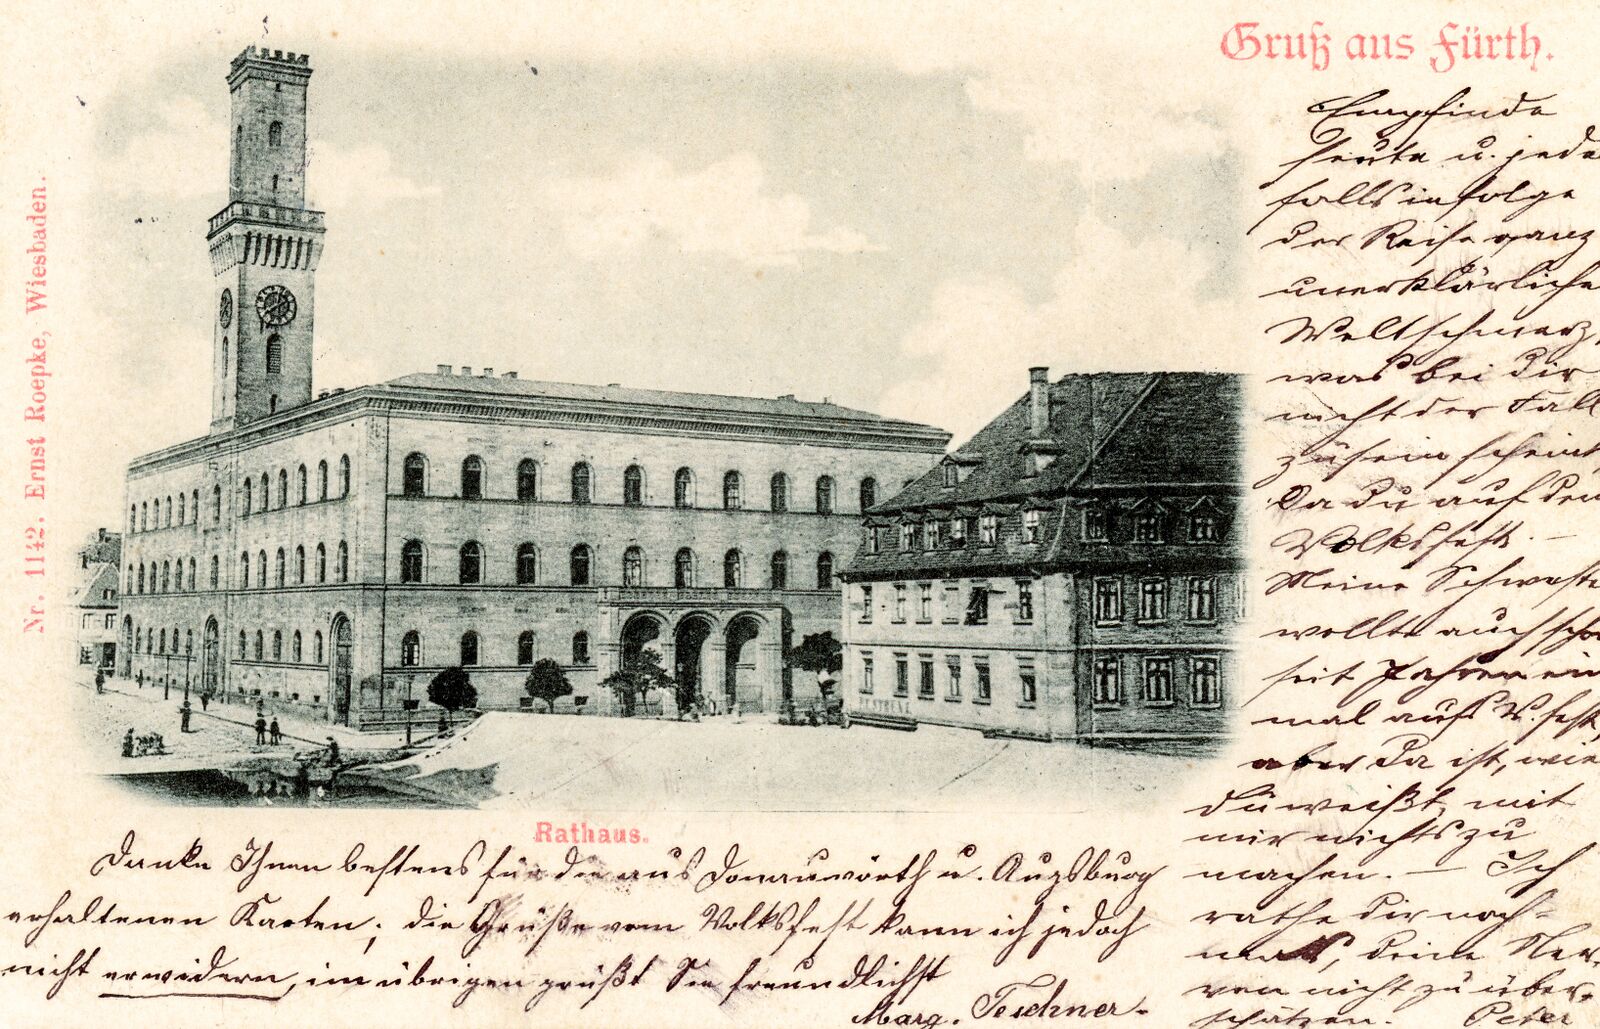 Gruß aus Fürth.
Nr. 1142. Ernst Roepke, Wiesbaden.
Empfinde
heute u. jeden
falls infolge
der Reise ganz
unerklärlichen
Weltschmerz,
was bei Dir
nicht der Fall
zu sein scheint
Da Du auf dem
Volksfest. —
Meine Schwester
wollte auch schon
seit Jahren ein
mal aufs V.fest,
aber da ist, wie
Du weißt, mit
mir nichts zu
machen. — Ich
rathe Dir noch-
mals, Deine Ner-
ven nicht zu über-
schätzen. Peter
Rathaus.
Danke Ihnen bestens für die aus Donauwörth u. Augsburg
erhaltenen Karten; die Grüße vom Volksfest kann ich jedoch
nicht erwidern, im übrigen grüßt Sie freundlichst
Marg. Teschner.